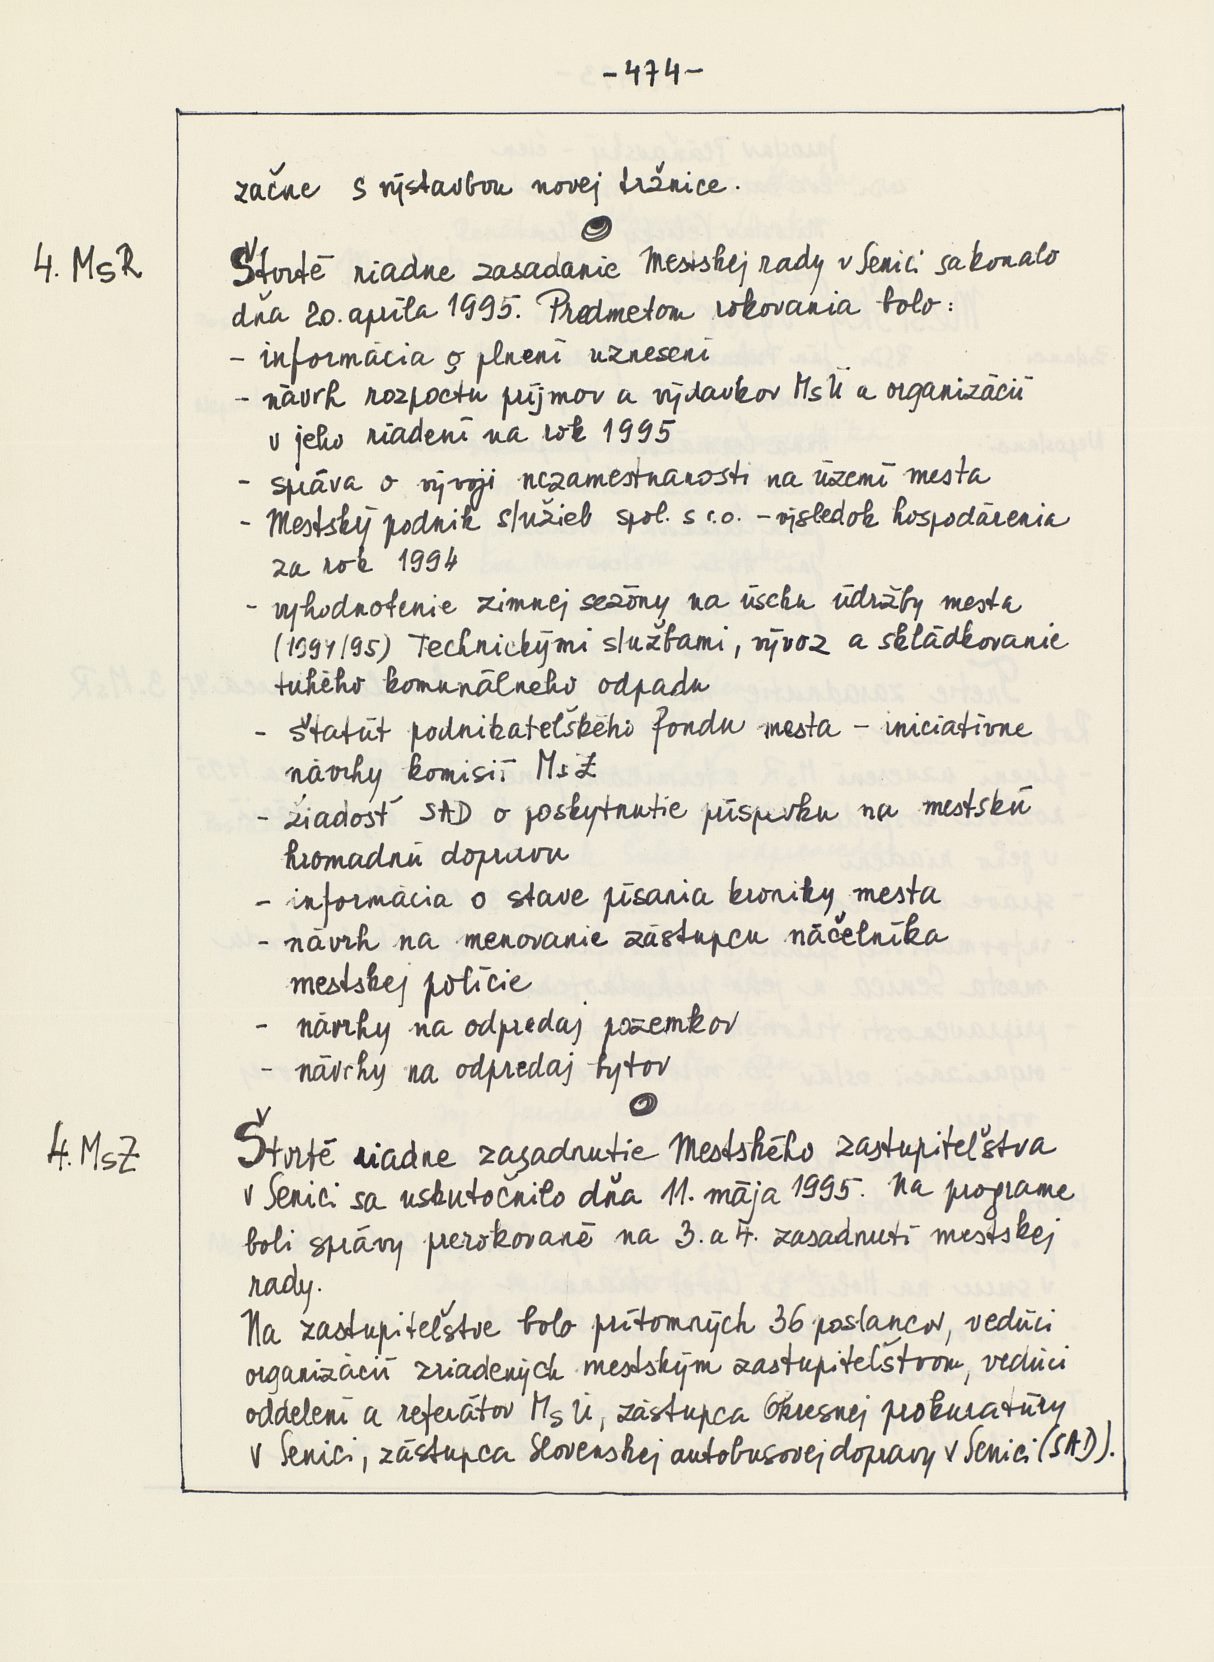 -474-
začne s výstavbou novej tržnice.
4. MsR
Štvrté riadne zasadanie Mestskej rady v Senici sa konalo
dňa 20. apríla 1995. Predmetom rokovania bolo:
- informácia o plnení uznesení
- návrh rozpočtu príjmov a výdavkov MsÚ a organizácií
v jeho riadení na rok 1995
- správa o vývoji nezamestnanosti na území mesta
- Mestský podnik služieb spol. s r.o. - výsledok hospodárenia
za rok 1994
- vyhodnotenie zimnej sezóny na úseku údržby mesta
(1994/95) Technickými službami, vývoz a skládkovanie
tuhého komunálneho odpadu
- štatút podnikateľského fondu mesta - iniciatívne
návrhy komisií MsZ
- žiadosť SAD o poskytnutie príspevku na mestskú
hromadnú dopravu
- informácia o stave písania kroniky mesta
- návrh na menovanie zástupcu náčelníka
mestskej polície
- návrhy na odpredaj pozemkov
- návrhy na odpredaj bytov
4. MsZ
Štvrté riadne zasadnutie Mestského zastupiteľstva
v Senici sa uskutočnilo dňa 11. mája 1995. Na programe
boli správy prerokované na 3. a 4. zasadnutí mestskej
rady.
Na zastupiteľstve bolo prítomných 36 poslancov, vedúci
organizácií zriadených mestským zastupiteľstvom, vedúci
oddelení a referátov MsÚ, zástupca Okresnej prokuratúry
v Senici, zástupca Slovenskej autobusovej dopravy v Senici (SAD).